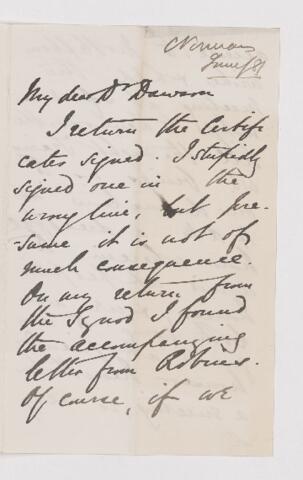 Norman
June/81
My dear Dr Dawson
I return the Certifi
cates signed. I stupidly
signed one in the
wrong line, but pre-
sume it is not of
much consequence.
On my return from
the Synod I found
the accompanying
letter from Robins.
Of course, if we